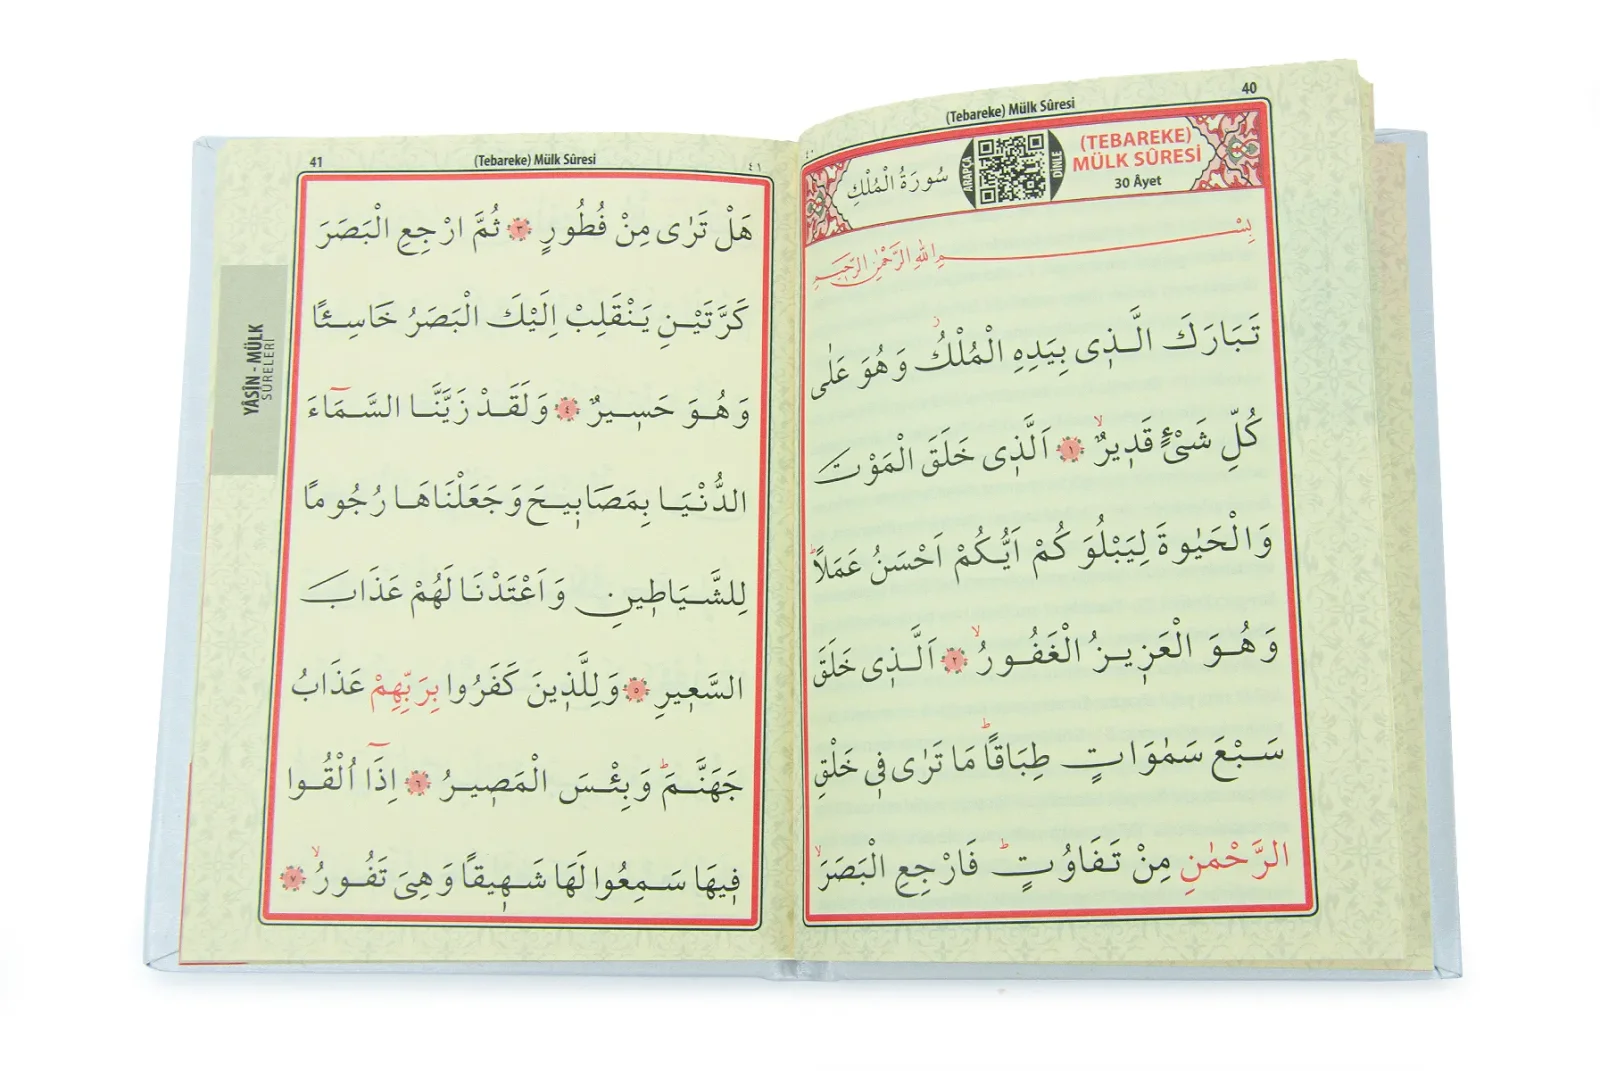 40
(Tebareke) Mülk Sûresi
٤٠
(TEBAREKE)
MÜLK SÛRESİ
30 Âyet
DİNLE
ARAPÇA
سُورَةُ الْمُلْكِ
بِسْــــــمِ اللهِ الرَّحْمٰنِ الرَّحِيمِ
تَبَارَكَ الَّذِى بِيَدِهِ الْمُلْكُ وَهُوَ عَلٰى
كُلِّ شَىْءٍ قَدِيرٌ ﴿١﴾ اَلَّذِى خَلَقَ الْمَوْتَ
وَالْحَيٰوةَ لِيَبْلُوَكُمْ اَيُّكُمْ اَحْسَنُ عَمَلًاؕ
وَهُوَ الْعَزِيزُ الْغَفُورُ ﴿٢﴾ اَلَّذِى خَلَقَ
سَبْعَ سَمٰوَاتٍ طِبَاقًاؕ مَا تَرٰى فِى خَلْقِ
الرَّحْمٰنِ مِنْ تَفَاوُتٍؕ فَارْجِعِ الْبَصَرَۙ
41
(Tebareke) Mülk Sûresi
٤١
هَلْ تَرٰى مِنْ فُطُورٍ ﴿٣﴾ ثُمَّ ارْجِعِ الْبَصَرَ
كَرَّتَيْنِ يَنْقَلِبْ اِلَيْكَ الْبَصَرُ خَاسِئًا
وَهُوَ حَسِيرٌ ﴿٤﴾ وَلَقَدْ زَيَّنَّا السَّمَٓاءَ
الدُّنْيَا بِمَصَابِيحَ وَجَعَلْنَاهَا رُجُومًا
لِلشَّيَاطِينِ وَاَعْتَدْنَا لَهُمْ عَذَابَ
السَّعِيرِ ﴿٥﴾ وَلِلَّذِينَ كَفَرُوا بِرَبِّهِمْ عَذَابُ
جَهَنَّمَؕ وَبِئْسَ الْمَصِيرُ ﴿٦﴾ اِذَٓا اُلْقُوا
فِيهَا سَمِعُوا لَهَا شَهِيقًا وَهِىَ تَفُورُۙ ﴿٧﴾
YÂSÎN - MÜLK
SÛRELERİ